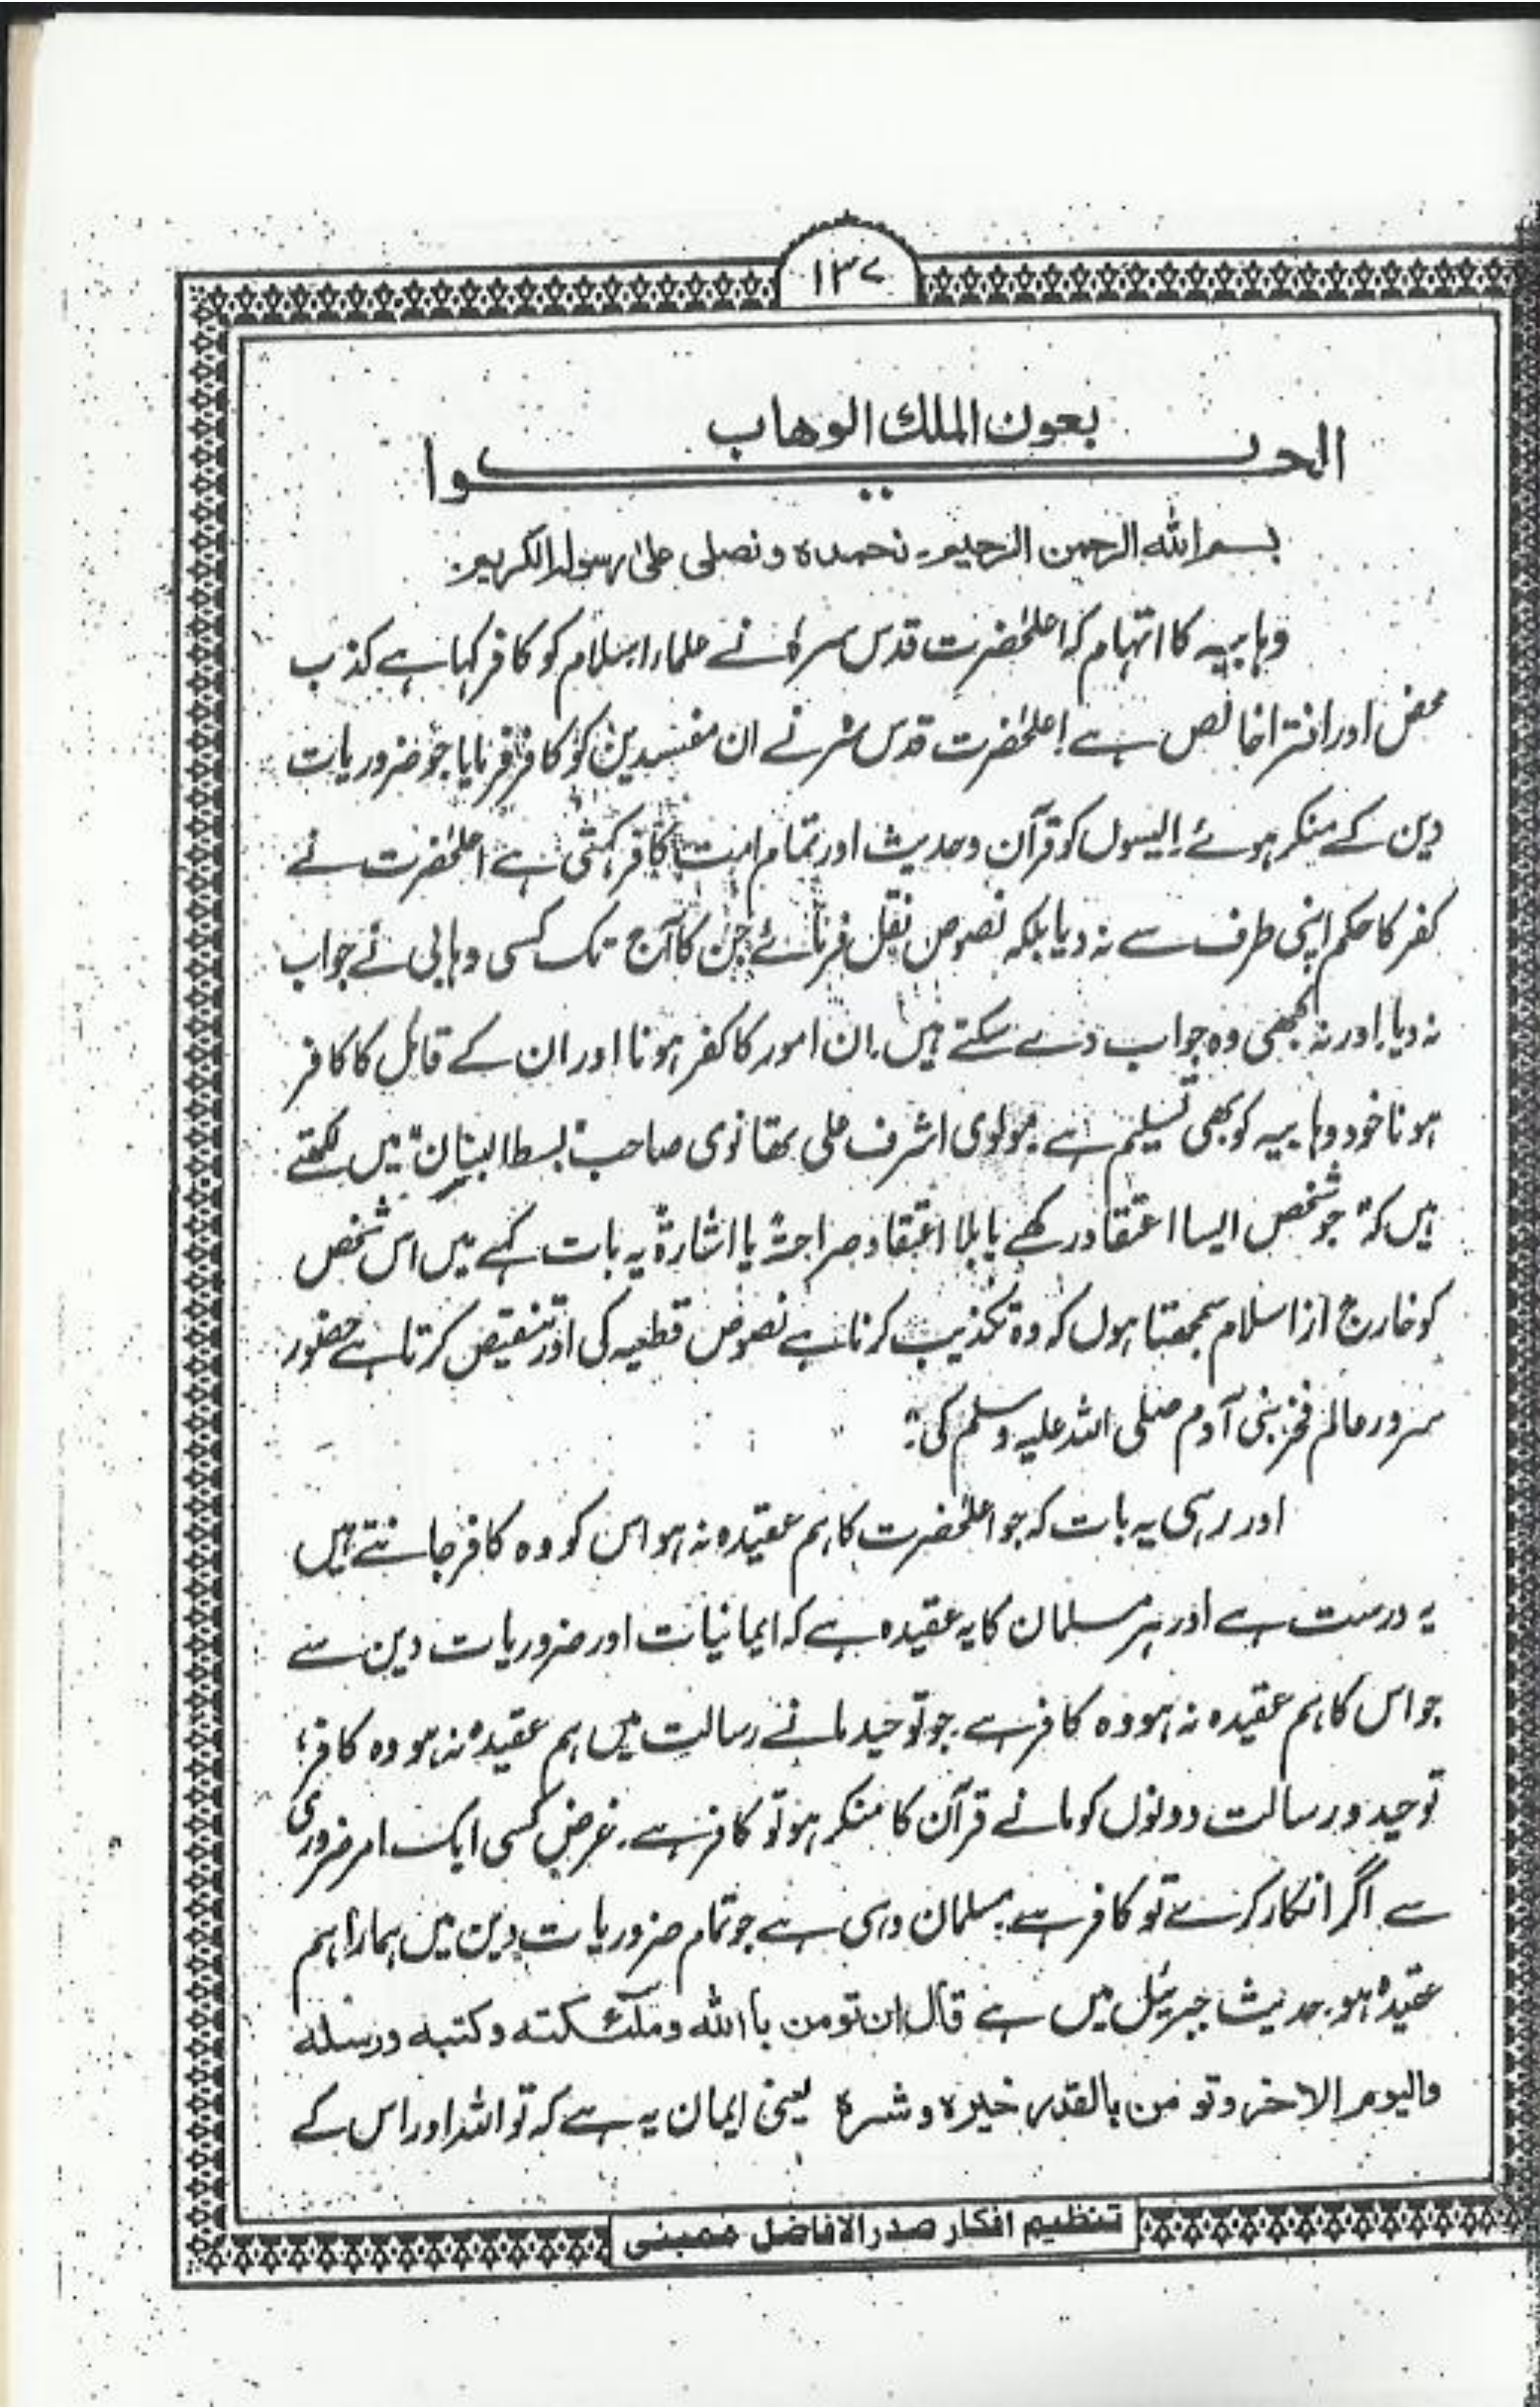 ۱۳۷
بعون الملك الوهاب
الجواب
بسم الله الرحمن الرحیم۔ نحمدہ و نصلی علیٰ رسولہ الکریم۔
وہابیہ کا اتہام کہ اعلحٰضرت قدس سرہٗ نے علماء اسلام کو کافر کہا ہے کذب
محض اور افترا خالص ہے اعلحٰضرت قدس سرہ نے ان مفسدین کو کافر فرمایا جو ضروریات
دین کے منکر ہوئے۔ ایسوں کو قرآن و حدیث اور تمام امت کافر کہتی ہے اعلحٰضرت نے
کفر کا حکم اپنی طرف سے نہ دیا بلکہ نصوص نقل فرمائے جن کا آج تک کسی وہابی نے جواب
نہ دیا۔ اور نہ کبھی وہ جواب دے سکتے ہیں۔ ان امور کا کفر ہونا اور ان کے قائل کا کافر
ہونا خود وہابیہ کو بھی تسلیم ہے۔ مولوی اشرف علی تھانوی صاحب "بسط البنان" میں لکھتے
ہیں کہ "جو شخص ایسا اعتقاد رکھے یا بلا اعتقاد صراحۃً یا اشارۃً یہ بات کہے میں اس شخص
کو خارج از اسلام سمجھتا ہوں کہ وہ تکذیب کرتا ہے نصوص قطعیہ کی اور تنقیص کرتا ہے حضور
سرور عالم فخر بنی آدم صلی اللہ علیہ وسلم کی"۔
اور رہی یہ بات کہ جو اعلحٰضرت کا ہم عقیدہ نہ ہو اس کو وہ کافر جانتے ہیں
یہ درست ہے اور ہر مسلمان کا یہ عقیدہ ہے کہ ایمانیات اور ضروریات دین سے
جو اس کا ہم عقیدہ نہ ہو وہ کافر ہے۔ جو توحید مانے رسالت میں ہم عقیدہ نہ ہو وہ کافر؛
توحید و رسالت دونوں کو مانے قرآن کا منکر ہو تو کافر ہے۔ غرض کسی ایک امر ضروری
سے اگر انکار کرے تو کافر ہے۔ مسلمان وہی ہے جو تمام ضروریات دین میں ہمارا ہم
عقیدہ ہو۔ حدیث جبرئیل میں ہے قال ان تومن باالله وملٰئكته وكتبه ورسله
والیوم الاخر وتو من بالقدر خیرہ وشرہ یعنی ایمان یہ ہے کہ تو اللہ اور اس کے
تنظیم افکار صدرالافاضل ممبئی